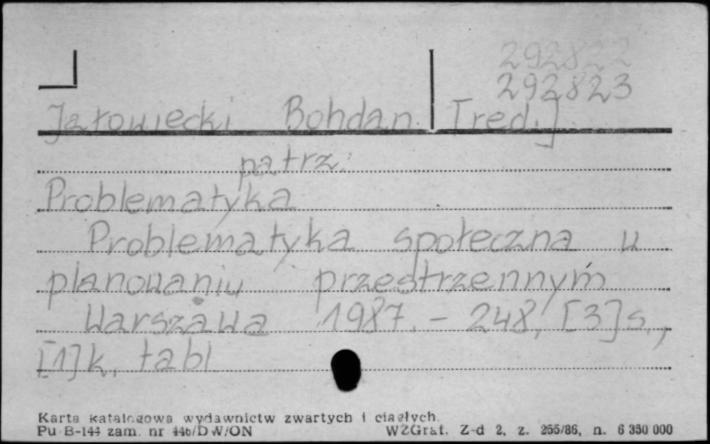 292822
292823
Jałowiecki Bohdan. [red.]
patrz:
Problematyka
Problematyka społeczna w
planowaniu przestrzennym
Warszawa 1987. - 248, [3]s.,
[1]k. tabl
Karta katalogowa wydawnictw zwartych i ciągłych.
Pu B-144 zam. nr 446/DW/ON WZGraf. Z-d 2, z. 255/86, n. 6 350 000